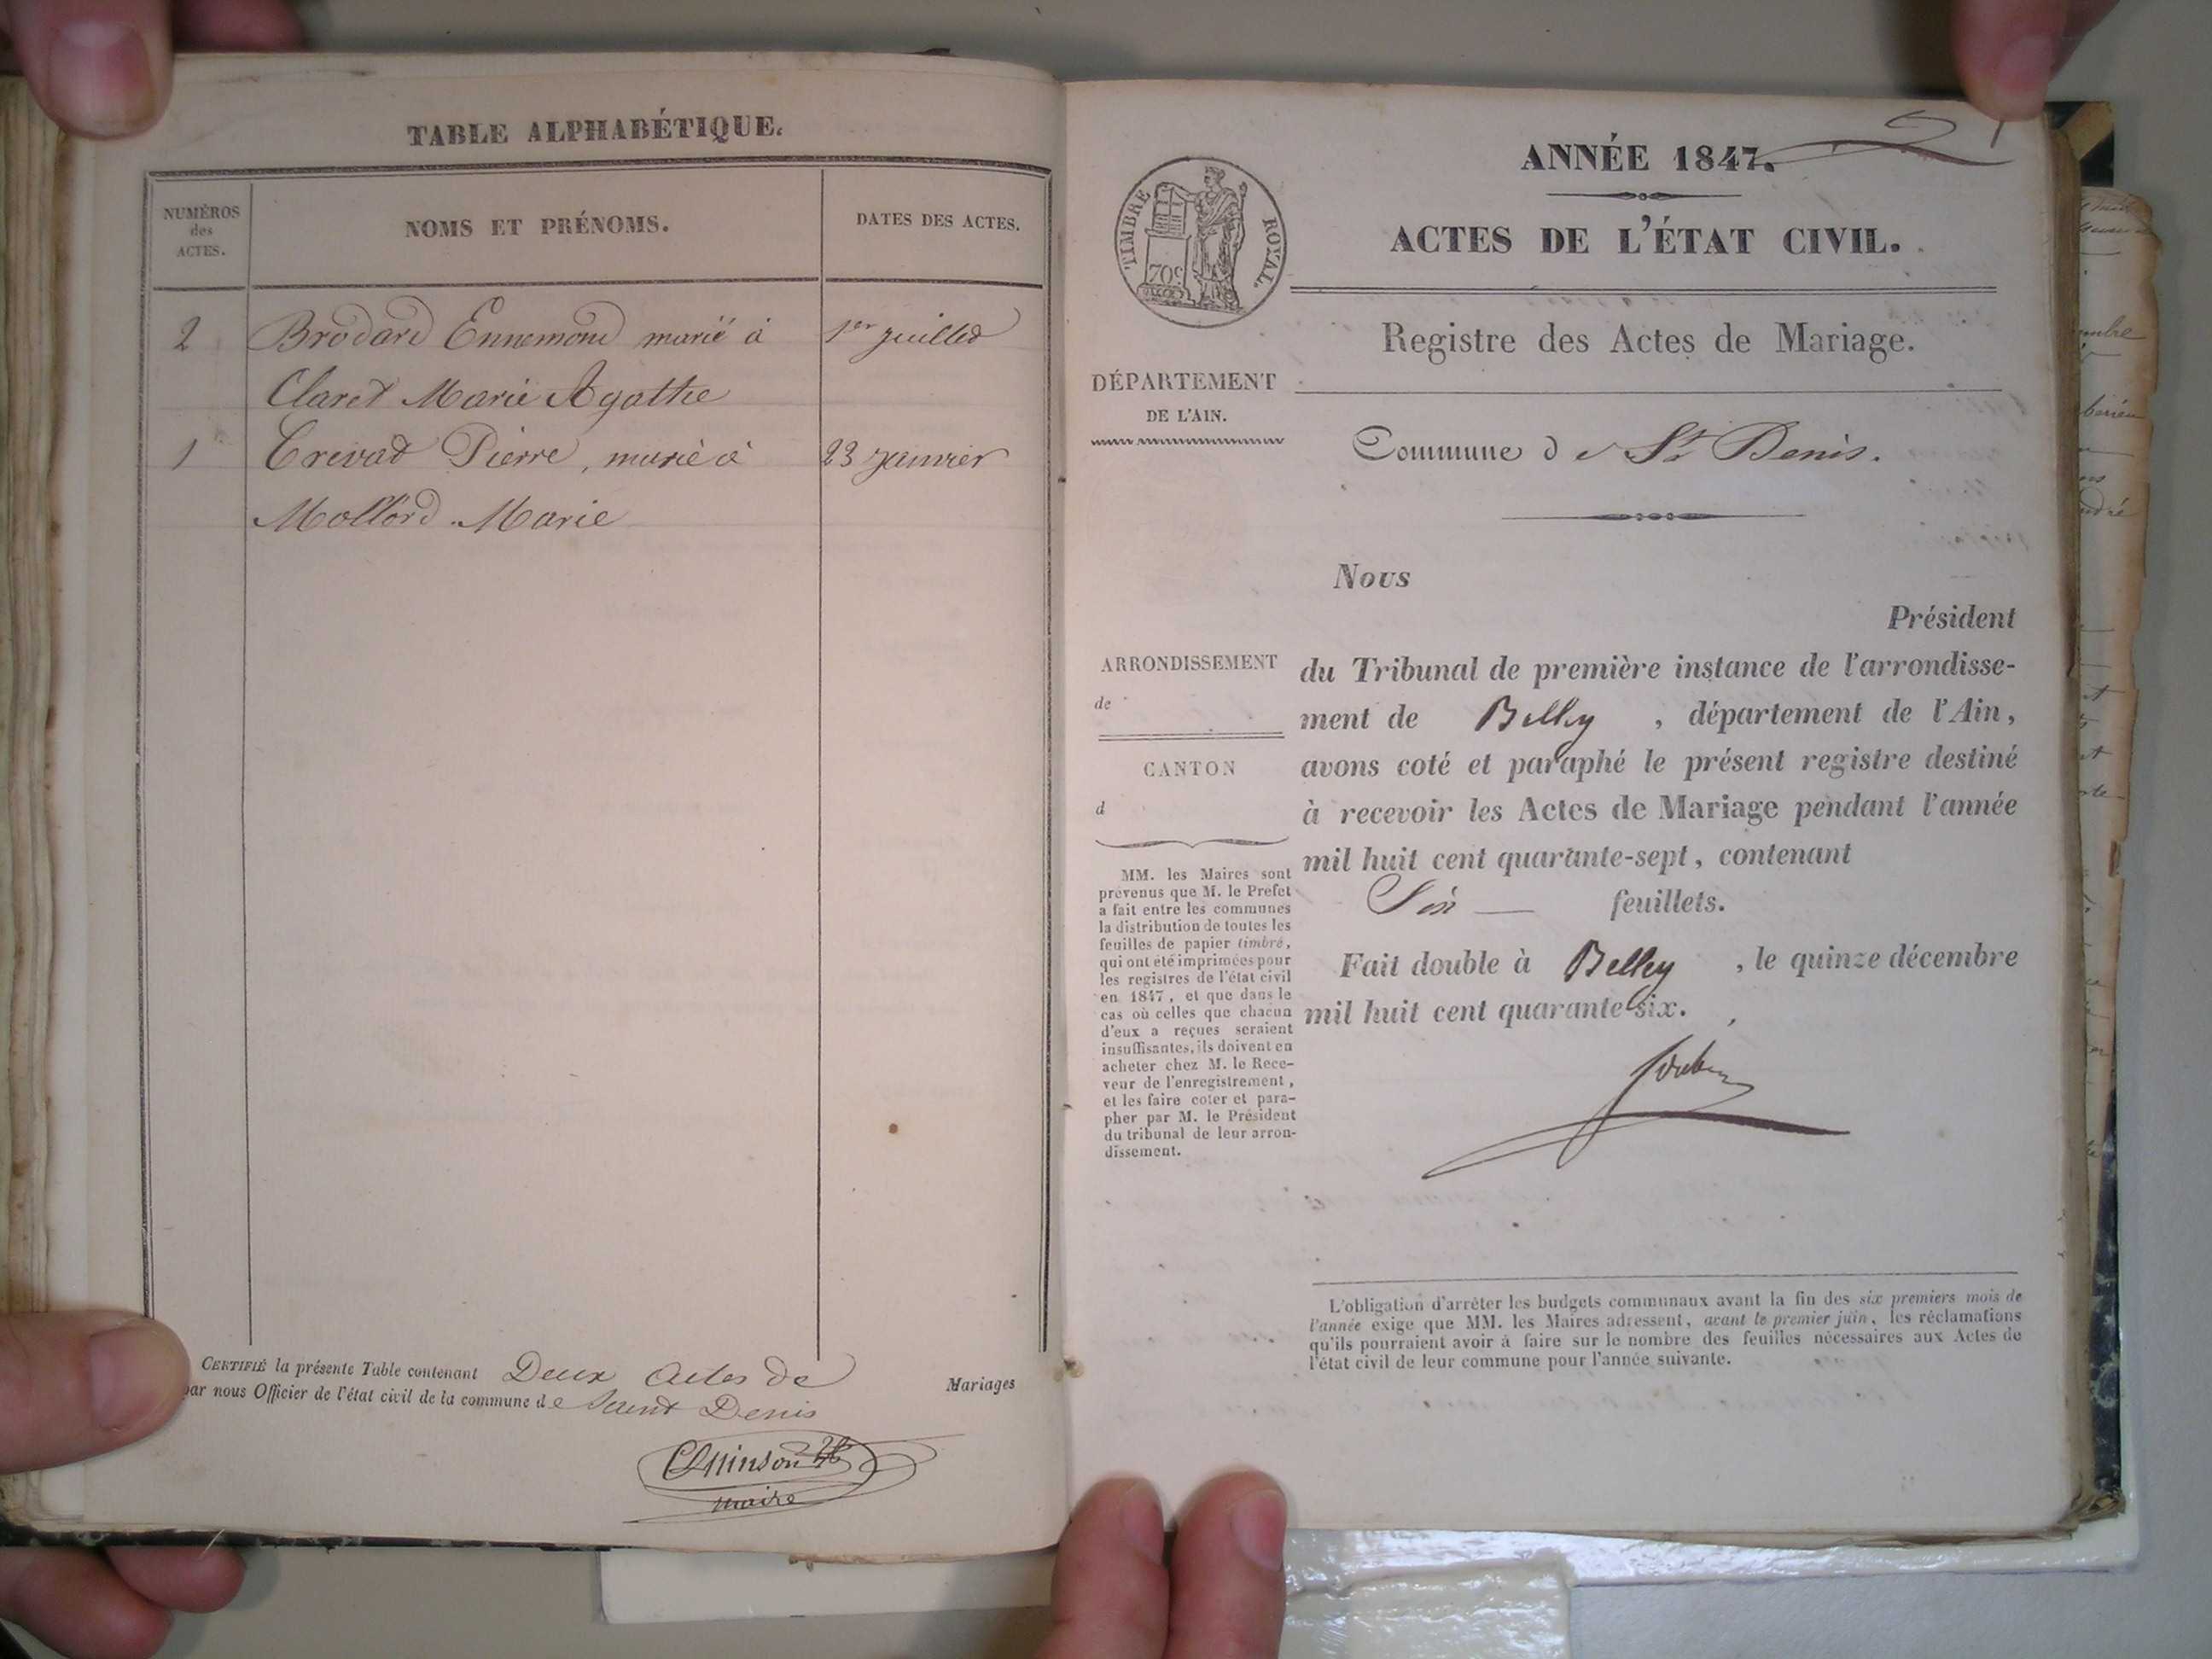 TABLE ALPHABÉTIQUE.
NUMÉROS
des
ACTES.
NOMS ET PRÉNOMS.
DATES DES ACTES.
2 Brodard Ennemond marié à 1er juillet
Claret Marie Agathe
1 Crevat Pierre, marié à 23 janvier
Mollard Marie
CERTIFIÉ la présente Table contenant Deux actes de Mariages
par nous Officier de l'état civil de la commune de Saint Denis
maire
ANNÉE 1847.
TIMBRE ROYAL.
70c
ACTES DE L'ÉTAT CIVIL.
Registre des Actes de Mariage.
DÉPARTEMENT
DE L'AIN.
Commune de St Denis.
Nous
Président
ARRONDISSEMENT
de
CANTON
d
du Tribunal de première instance de l'arrondisse-
ment de Belley, département de l'Ain,
avons coté et paraphé le présent registre destiné
à recevoir les Actes de Mariage pendant l'année
mil huit cent quarante-sept, contenant
Six feuillets.
Fait double à Belley, le quinze décembre
mil huit cent quarante-six.
MM. les Maires sont
prévenus que M. le Préfet
a fait entre les communes
la distribution de toutes les
feuilles de papier timbré,
qui ont été imprimées pour
les registres de l'état civil
en 1847, et que dans le
cas où celles que chacun
d'eux a reçues seraient
insuffisantes, ils doivent en
acheter chez M. le Rece-
veur de l'enregistrement,
et les faire coter et para-
pher par M. le Président
du tribunal de leur arron-
dissement.
L'obligation d'arrêter les budgets communaux avant la fin des six premiers mois de
l'année exige que MM. les Maires adressent, avant le premier juin, les réclamations
qu'ils pourraient avoir à faire sur le nombre des feuilles nécessaires aux Actes de
l'état civil de leur commune pour l'année suivante.